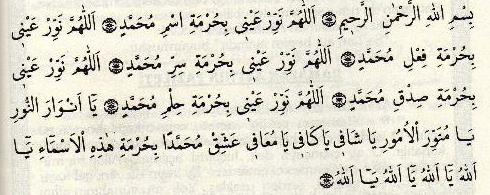 بِسْمِ اللهِ الرَّحْمٰنِ الرَّحِيمِ ۞ اَللّٰهُمَّ نَوِّرْ عَيْنٖى بِحُرْمَةِ اسْمِ مُحَمَّدٍ ۞ اَللّٰهُمَّ نَوِّرْ عَيْنٖى
بِحُرْمَةِ فِعْلِ مُحَمَّدٍ ۞ اَللّٰهُمَّ نَوِّرْ عَيْنٖى بِحُرْمَةِ سِرِّ مُحَمَّدٍ ۞ اَللّٰهُمَّ نَوِّرْ عَيْنٖى
بِحُرْمَةِ صِدْقِ مُحَمَّدٍ ۞ اَللّٰهُمَّ نَوِّرْ عَيْنٖى بِحُرْمَةِ حِلْمِ مُحَمَّدٍ ۞ يَٓا اَنْوَارَ النُّورِ
يَا مُنَوِّرَ الْاُمُورِ يَا شَافٖى يَا كَافٖى يَا مُعَافٖى عَشِّقْ مُحَمَّدًا بِحُرْمَةِ هٰذِهِ الْاَسْمَٓاءِ يَٓا
اَللهُ يَٓا اَللهُ يَٓا اَللهُ يَٓا اَللهُ ۞